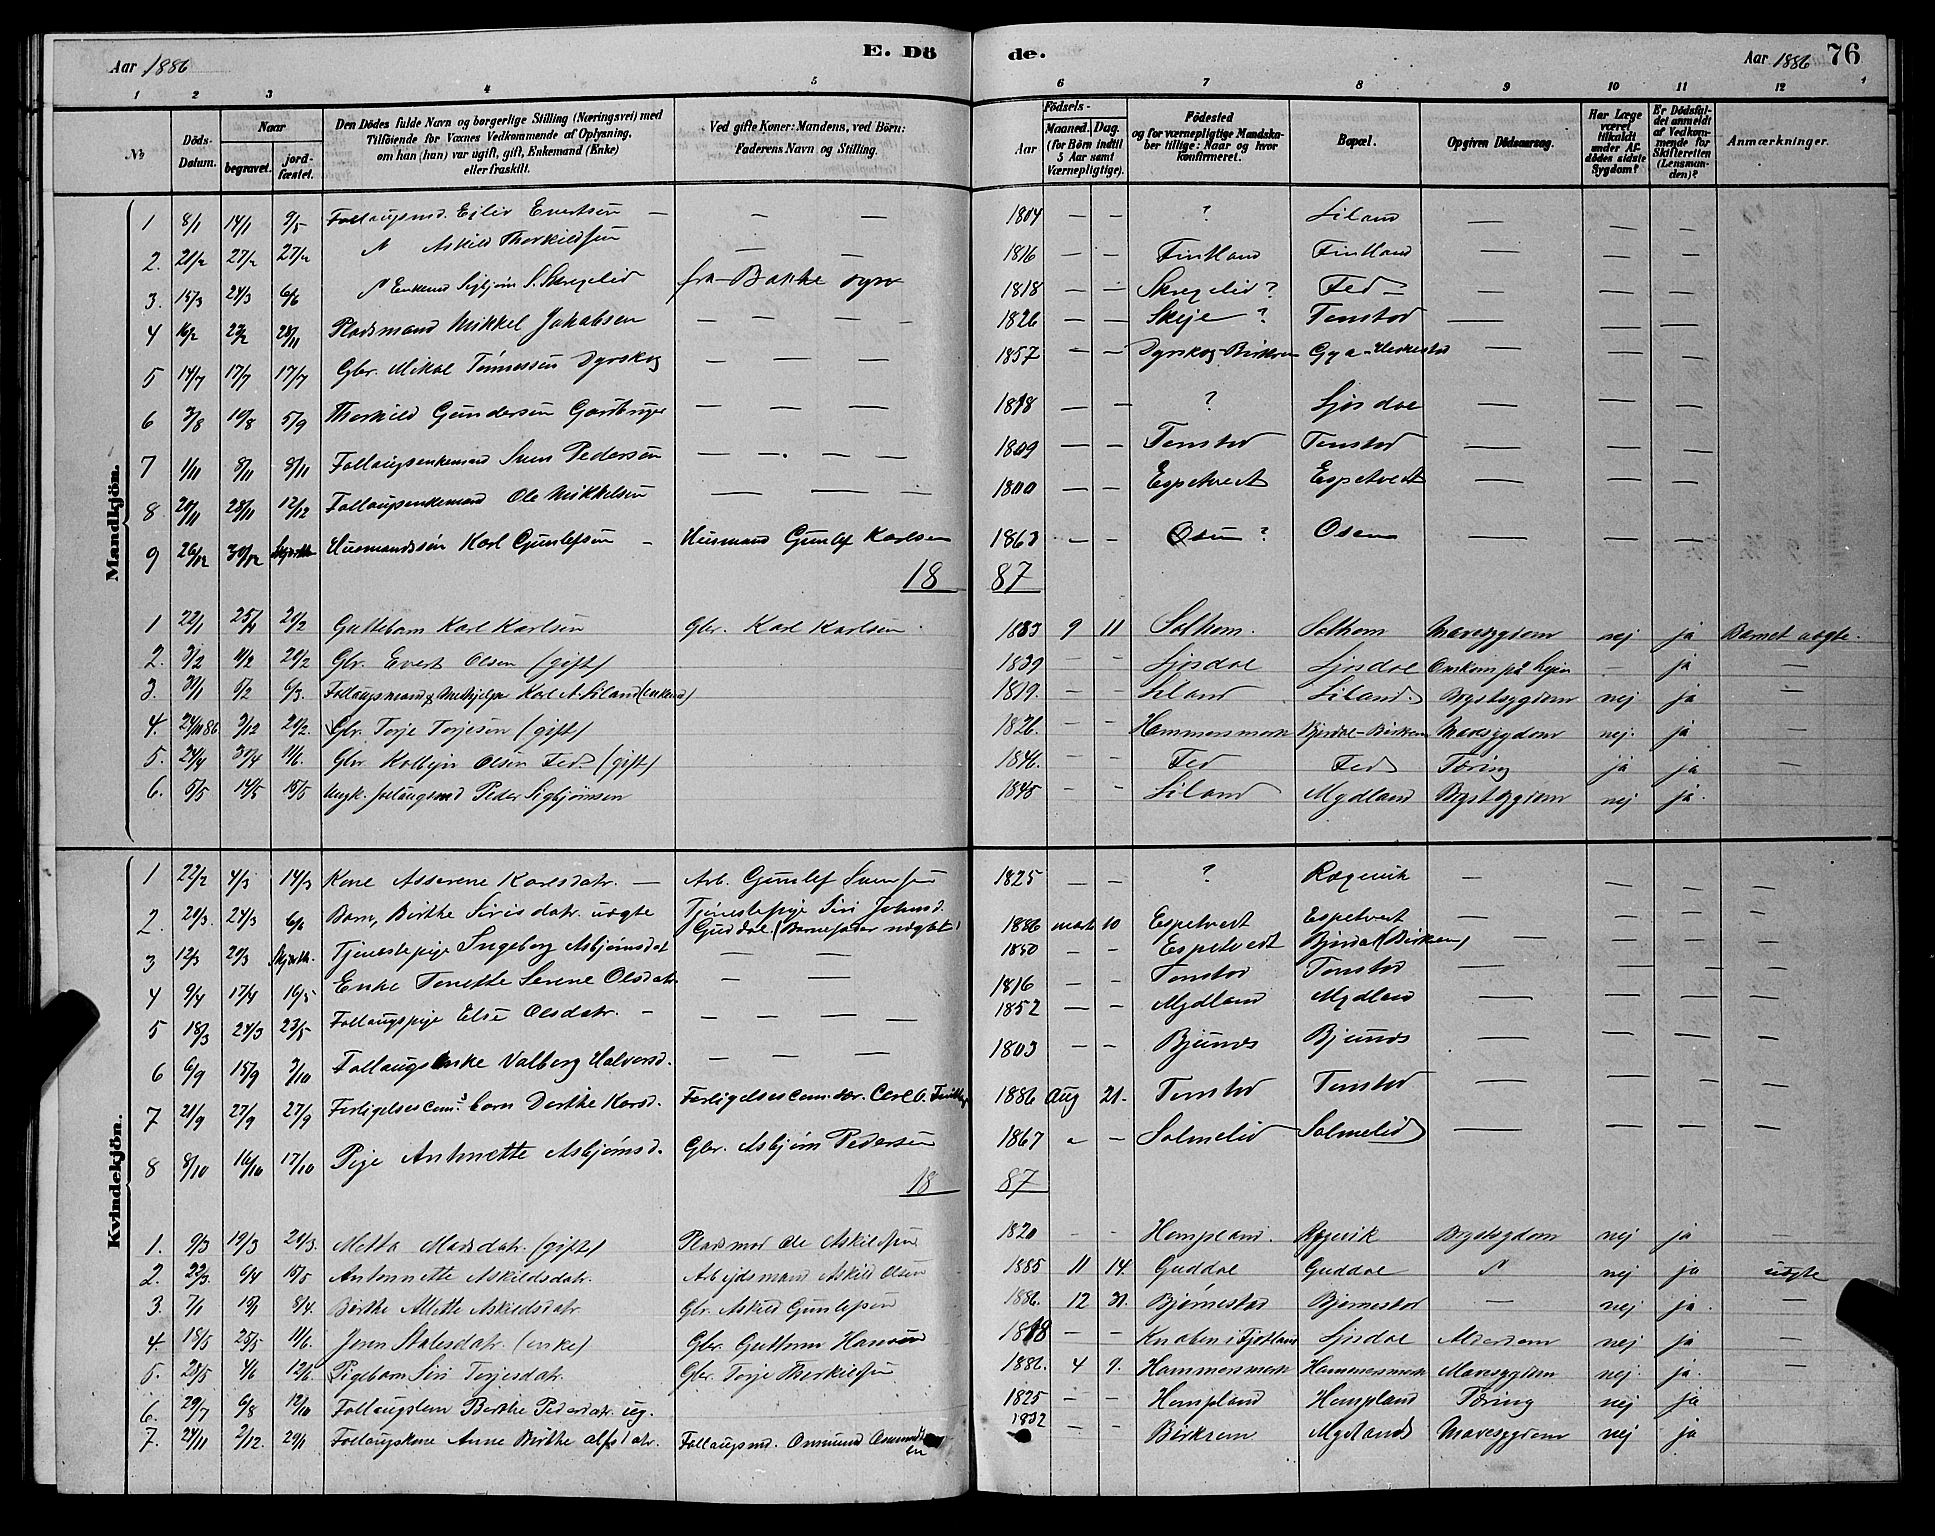 Aar 1886
E. Dö
de.
Aar 1886
76
1 2 3 4 5
6 7 8 9 10 11 12
No
Döds-Datum.
Naar begravet. jordfæstet.
Den Dödes fulde Navn og borgerlige Stilling (Næringsvei) med Tilföiende for Voxnes Vedkommende af Oplysning, om han (hun) var ugift, gift, Enkemand (Enke) eller fraskilt.
Ved gifte Koner: Mandens, ved Börn: Faderens Navn og Stilling.
Födsels-
Aar
Maaned. Dag.
(for Börn indtil 5 Aar samt Værnepligtige).
Födested og for værnepligtige Mandskaber tillige: Naar og hvor konfirmeret.
Bopæl.
Opgiven Dödsaarsag.
Har Læge været tilkaldt under Afdödes sidste Sygdom?
Er Dödsfaldet anmeldt af Vedkommende for Skifteretten (Lensmanden)?
Anmærkninger.
Mandkjön.
1 8/1 14/1 9/5 Follaugsmd. Eiliv Evertsen — — — 1804 — — ? Liland — — — —
2. 21/2 27/2 27/2 " Askild Thorkildsen — — 1816 — — Fintland Fintland — — — —
3. 15/3 24/3 6/6 " Enkemd Sigbjørn S. Skregelid fra Bakke sogn 1818 — — Skregelid ? Fed — — — —
4 16/2 23/2 28/11 Pladsmand Mikkel Jakobsen — — — — 1826 — — Skeje ? Tonstad — — — —
5 14/7 17/7 17/7 Gbr. Mikal Tønnessen Dyrskog — — — 1857 — — Dyrskog-Birkrem Gya-Heskestad — — — —
6 3/8 10/8 5/9 Thorkild Gundersen — — — 1818 — — ? Sjosdal — — — —
7 1/11 8/11 8/11 Follaugsenkemand Sven Pedersen — — — 1809 — — Tonstad Tonstad — — — —
8 20/11 28/11 12/12 Follaugsenkemand Ole Mikkelsen — — — — 1800 — — Espetvedt Espetvedt — — — —
9 26/12 30/12 Husmandssøn Karl Gunlefsen — Husmand Gunlef Karlsen 1863 — — Osen ? Osen — — — —
18 87
1 22/1 25/1 20/2 Guttebarn Karl Karlsen Gbr. Karl Karlsen. 1883 9 11 Solhom. Solhom Mavesygdom nej ja Barnet uægte.
2. 3/2 11/2 20/2 Gbr. Evert Olsen (gift) 1839 — — Sjosdal Sjosdal Omkom på heien — ja —
3. 31/1 5/2 6/3. Follaugsmand & Medhjelper Karl A. Liland (enkemd) 1819. — — Liland Liland. Brystsygdom nej ja —
4. 24/11 86 3/12 20/2. Gbr. Torje Torjesen (gift) 1826. — — Hammersmark Bjordal-Birkrem Mavesygdom nej. ja —
5. 24/4 30/4 11/6. Gbr Kolbjør Olsen Fed. (gift) 1841. — — Fed Fed Tæring ja ja —
6. 5/5 14/5 15/5 Ungk. follaugsmd Peder Sigbjørnsen 1845 — — Liland Mydland Brystsygdom nej ja. —
Kvindekjön.
1 22/2 4/3 14/3 Kone Asserene Karlsdatr. — Arb. Gunlef Svensen 1825 — — ? Rægevik — — — —
2. 20/3. 24/3 6/6 Barn, Birthe Sirisdatr. uægte Tjenestepige Siri Johnsd. Guddal. (Barnefader nægtet) 1886 marts 10 Espetvedt Espetvedt — — — —
3 12/3 20/3 Tjenestepige Ingeborg Asbjørnsdat — — 1850 — — Espetvedt Bjordal (Birkrem) — — — —
4 9/4 17/4 16/5 Enke Tonette Serene Olsdatr. — — 1816 — — Tonstad Tonstad — — — —
5 18/3 24/3 23/5 Follaugspige Else Olsdatr. — — — — — 1852 — — Mydland Mydland — — — —
6 6/9 15/9 3/10 Follaugsenke Valborg Halvorsd. — — — 1803 — — Bjunes Bjunes — — — —
7 21/9 27/9 27/9 Forligelsescoms. barn Dorthe Karsd. Forligelsescom.sær. Carl G. 1886 Aug 21. Tonstad Tonstad — — — —
8 8/10 16/10 17/10 Pige Antonette Asbjørnsd. Gbr. Asbjørn Pedersen 1867 " — Solmelid Solmelid — — — —
18 87
1. 9/3 19/3 21/3. Metta Madsdatr. (gift) Pladsmd Ole Askildsen 1820 — — Hompland. Rægevik Brystsygdom nej ja —
2. 22/3. 6/4 15/5 Antonette Askildsdatr. Arbejdsmand Askild Olsen 1885 11 14. Guddal Guddal " nej ja uægte
3. 7/1 8/4. Birthe Mette Askildsdatr. Gbr. Askild Gunlefsen 1886. 12 31. Bjørnestad Bjørnestad — nej ja. —
4. 18/5 25/5 11/6. Joren Stalesdatr. (enke) Gbr. Guttorm Hansen 1818 — — Knaben i Fjotland Sjosdal Alderdom nej ja —
5. 28/5 4/6 12/6 Pigebarn Siri Torjesdatr. Gbr. Torje Therkildsen 1886. 4 9. Hammersmark Hammersmark Mavesygdom nej. ja. —
6. 29/7 6/8 12/10 Follaugslem Birthe Pedersdatr. ug. 1825 — — Hompland Hompland Tæring nej ja
7. 24/11 2/12. 29/1 Follaugskone Anne Birthe Alfsdatr. Follaugsmd. Omund Omundsen 1832 — — Birkrem Mydland Mavesygdom nej ja